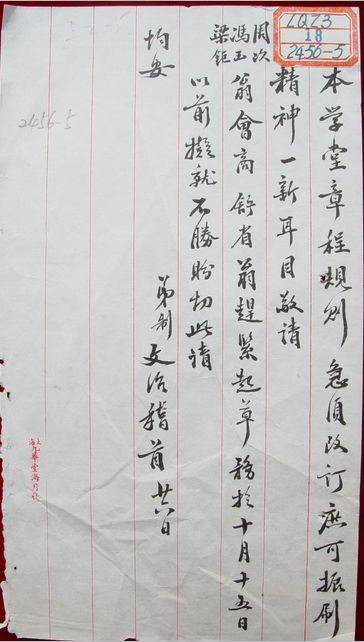 LQ7.3
18
2456-5
本学堂章程規則急須改訂庶可振刷
精神一新耳目敬請
周玖
馮玉
梁鉅
翁會商舒省翁趕緊起草務於十月十五日
以前擬就不勝盼切此請
均安
弟制文治稽首廿八日
2456-5
上海九華堂